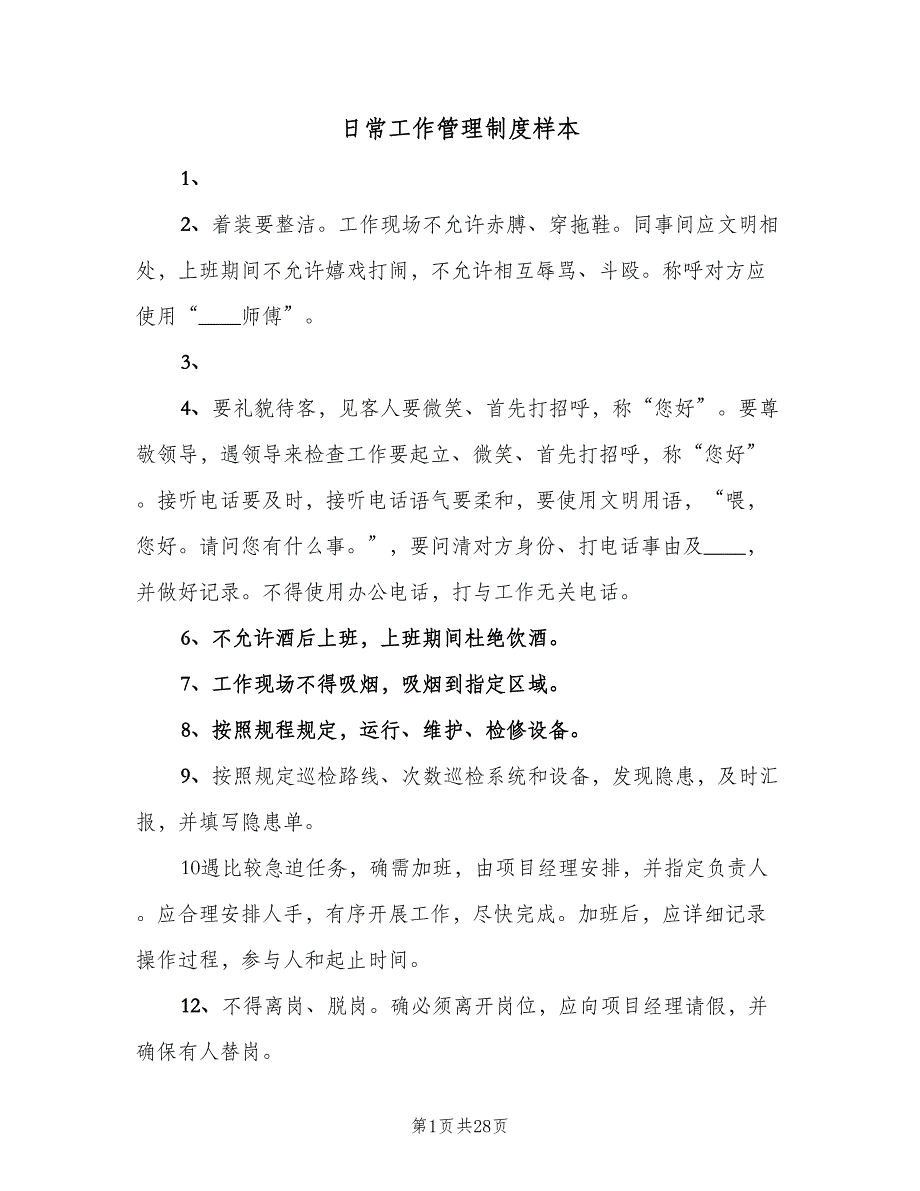 日常工作管理制度样本
1、
2、着装要整洁。工作现场不允许赤膊、穿拖鞋。同事间应文明相
处，上班期间不允许嬉戏打闹，不允许相互辱骂、斗殴。称呼对方应
使用“____师傅”。
3、
4、要礼貌待客，见客人要微笑、首先打招呼，称“您好”。要尊
敬领导，遇领导来检查工作要起立、微笑、首先打招呼，称“您好”
。接听电话要及时，接听电话语气要柔和，要使用文明用语，“喂，
您好。请问您有什么事。”，要问清对方身份、打电话事由及____，
并做好记录。不得使用办公电话，打与工作无关电话。
6、不允许酒后上班，上班期间杜绝饮酒。
7、工作现场不得吸烟，吸烟到指定区域。
8、按照规程规定，运行、维护、检修设备。
9、按照规定巡检路线、次数巡检系统和设备，发现隐患，及时汇
报，并填写隐患单。
10遇比较急迫任务，确需加班，由项目经理安排，并指定负责人
。应合理安排人手，有序开展工作，尽快完成。加班后，应详细记录
操作过程，参与人和起止时间。
12、不得离岗、脱岗。确必须离开岗位，应向项目经理请假，并
确保有人替岗。
第1页共28页